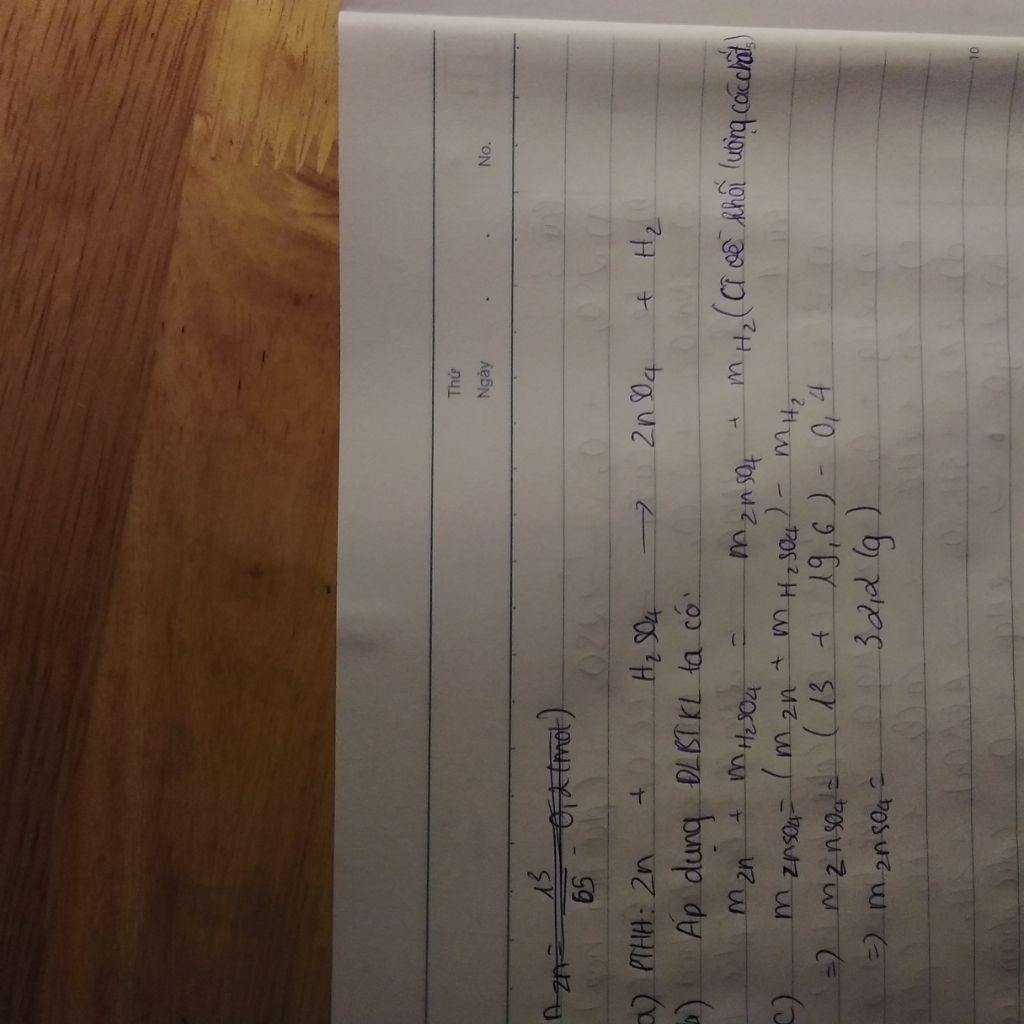 Thứ
Ngày . . No.
n Zn = 13/65 = 0,2 (mol)
a) PTHH: Zn + H2SO4 → ZnSO4 + H2
b) Áp dụng ĐLBTKL ta có:
mZn + mH2SO4 = mZnSO4 + mH2 (CT về khối lượng các chất)
c) mZnSO4 = (mZn + mH2SO4) - mH2
=) mZnSO4 = (13 + 19,6) - 0,4
=) mZnSO4 = 32,2 (g)
10